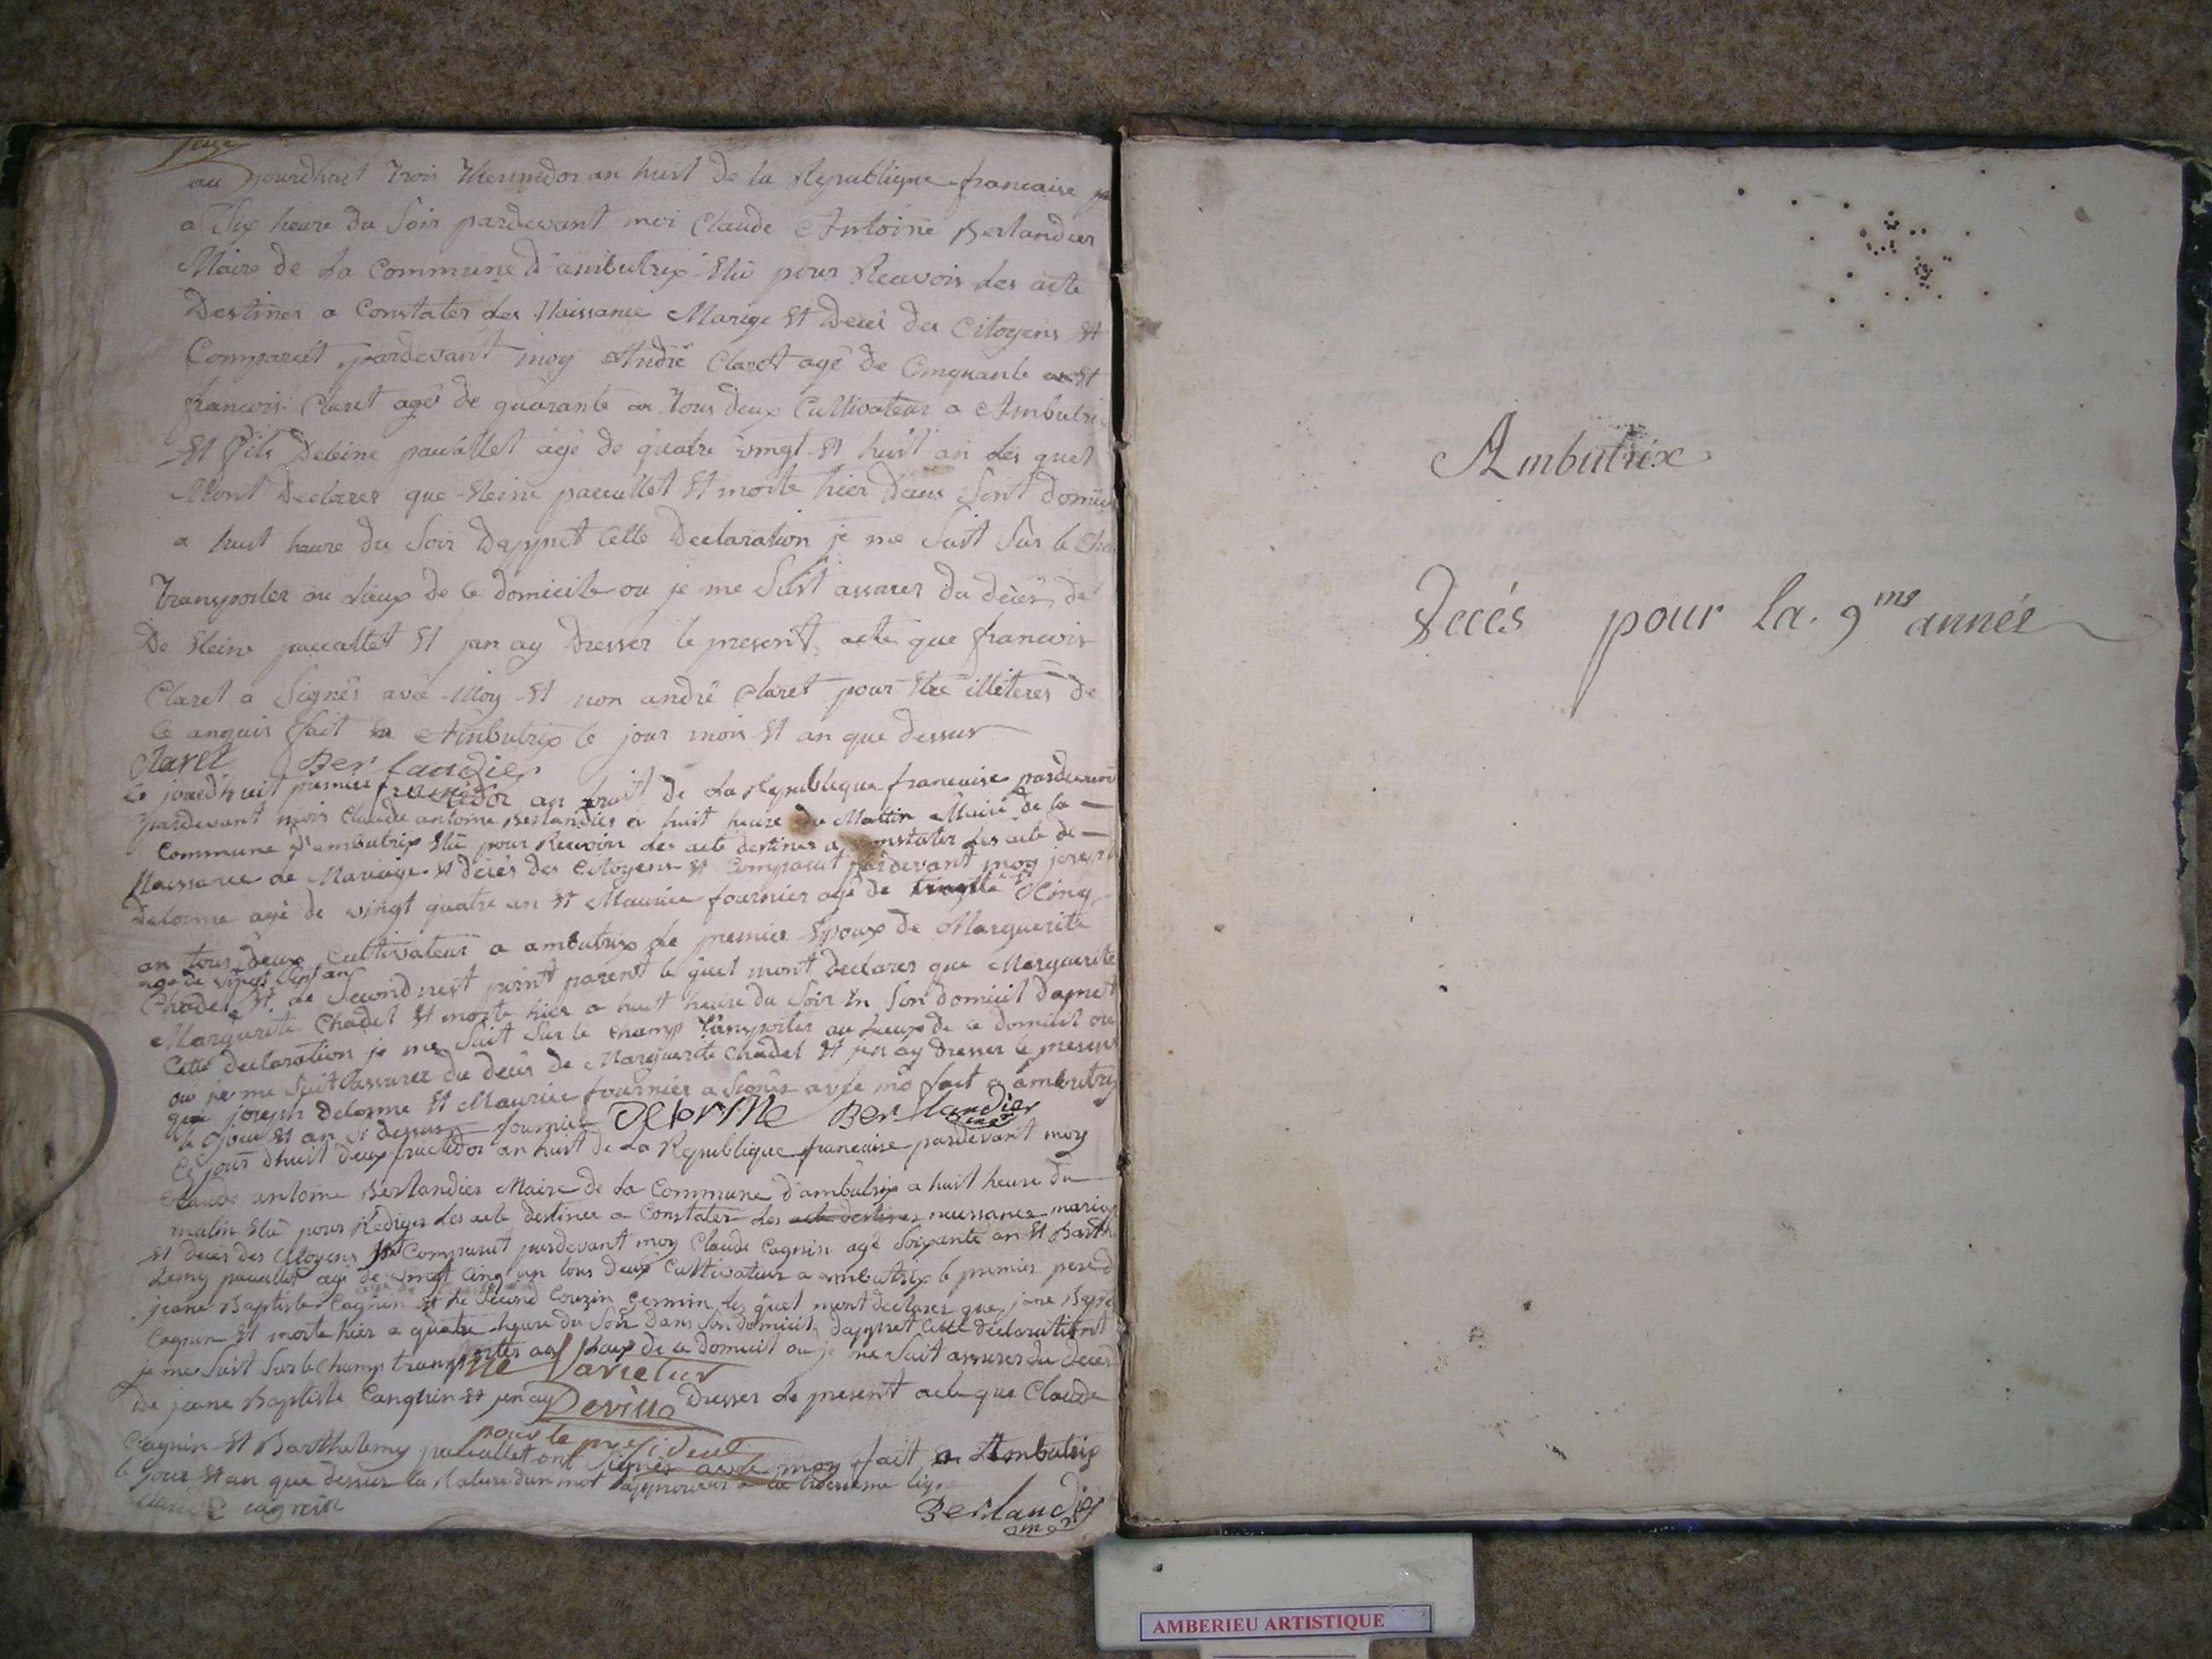 au jourdhuit Trois Thermidor an huit de la Republique francaise
a Six heure du Soir pardevant moi Claude Antoine Berlandier
Maire de La Commune d'ambutrix Elû pour Recevoir les acte
Destinés a Constater les Naissance Mariage Et Decés des Citoyens Et
Comparût pardevant moy André Claret agé de Cinquante an Et
francois Claret agé de quarante an Tous deux Cultivateur a Ambutri
Et fils Deleine pacallet agé de quatre vingt Et huit an les quel
Mont Declarer que Eleine pacallet Et morte hier dans Sont domici
a huit heure du Soir Dappret Cette Declaration je me Suit Sur le Cha
Transporter au Lieux de Ce domicile ou je me Suit assurer du décés de
De Eleine pacallet Et jan ay Dresser le present acte que francois
Claret a Signés avec Moy Et non andré Claret pour Etre illiterés de
Ce anquis fait a Ambutrix le jour mois Et an que dessus
Claret Berlandier
Ce jourdhuit premier fructidor an huit de La Republique francaise pardevant
pardevant moi Claude antoine Berlandier a huit heure du Mattin Maire de la
Commune d'ambutrix Elû pour Recevoir les acte destines a Constater les acte de
Naissance de Mariage Et décés des Citoyens Et Comparut pardevant moy joseph
Delorme agé de vingt quatre an Et Maurice fournier agé de Cinq
an tous deux Cultivateur a ambutrix le premier Epoux de Marguerite
agé de vingt Sept an
Chadel Et le Second nest point parent le quel mont declarer que Marguerite
Marguerite Chadel Et morte hier a huit heure du Soir En Son domicil dapret
Cette declaration je me Suit Sur le champ transporter au Lieux de ce domicil ou
ou je me Suit assurer du decés de Marguerite Chadel Et jen ay Dresser le present
que joseph delorme Et Maurice fournier a Signés avec mo fait a ambutrix
le jour Et an Si dessus fournier Delorme Berlandier
Ce jour dhuit deux fructidor an huit de La Republique francaise pardevant moy
Claude antoine Berlandier Maire de La Commune d'ambutrix a huit heure du
matin Elû pour Rediger les acte destiner a Constater les acte destines naissance mariag
Et decés des Citoyens Et Comparut pardevant moy Claude Cagnin agé Soixante an Et Barth
Lemy pacallet agé de vingt Cinq an tous deux Cultivateur a ambutrix le premier pere d
jeane Baptiste Cagnin Et le Second Couzin Germin les quel mont declarer que jane Bapti
Cagnin Et morte hier a quatre heure du Soir dans Son domicil dappret Cette declaration
je me Suit Sur le Champ transporter au Lieux de ce domicil ou je me Suit assurer du decés
Ne Varietur
De jeane Baptiste Canguin Et jen ay Dresser le present acte que Claude
pour le president
Cagnin Et Barthelemy pacallet ont Signés avec moy fait a Ambutrix
le jour Et an que dessus la Rature dun mot approuver a la troisieme ligne
Claude cagnin Berlandier
Ambutrix
Décés pour La 9me année
AMBERIEU ARTISTIQUE